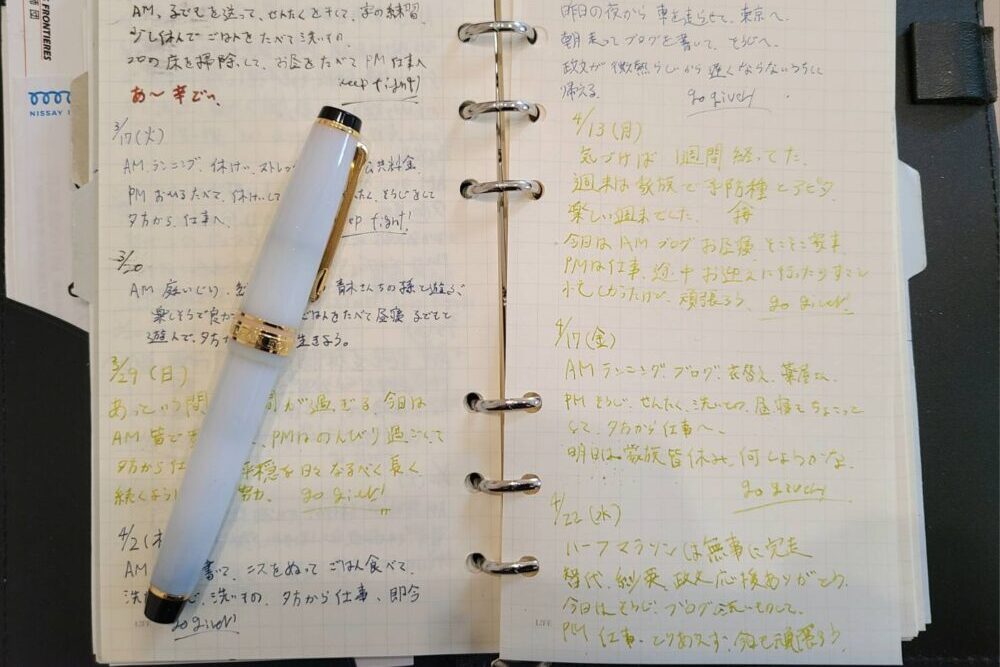 FRONTIERES
NISSAY
AM、子どもを送って、せんたくをして、字の練習
少し休んでごはんをたべて洗いもの、
コロの床を掃除して、お昼をたべてPM仕事へ
keep tight!
あ〜幸せ
3/17(火)
AMランニング、休けい、ストレッ 公共料金
PMお昼たべて、休けいして たく、そうじをして
夕方から、仕事へ
p tight!
3/20
AM庭いじり、 青木さんちの孫と遊ぶ、
楽しそうで良か ごはんをたべて昼寝 子どもと
遊んで、夕方 生きよう。
3/29(日)
あっという間 間が過ぎる。今日は
AM皆で 、PMはのんびり過ごして
夕方から仕 平穏な日々なるべく長く
続くように 努力。go give!
4/2(木
AM 書いて、ニスをぬって ごはん食べて、
洗 、洗いもの、夕方から仕事、即今
go give!
LIFE
昨日の夜から車を走らせて、東京へ。
朝走ってブログを書いて、そうじへ。
政文が微熱らしいから遅くならないうちに
帰える。
go give!
4/13(月)
気づけば1週間経ってた。
週末は家族で予防種とアピタ
楽しい週末でした。
今日はAMブログお昼寝そこそこ家事
PMは仕事、途中お迎えに行ったりすこし
忙しかったけど、頑張ろう go give!
4/17(金)
AMランニング、ブログ、衣替え、薬屋さん
PMそうじ、せんたく、洗いもの、昼寝もちょこっと
して、夕方から仕事へ。
明日は家族皆休み、何しようかな。
go give!
4/22(水)
ハーフマラソンは無事に完走
智代、紗栗、政文応援ありがとう。
今日はそうじ、ブログ洗いものして、
PM仕事、とりあえず、今日も頑張ろう
LIFE